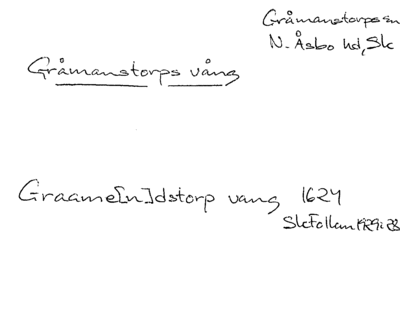 Gråmanstorps sn
N. Åsbo hd, Sk
Gråmanstorps vång
Graame[n]dstorp vang 1624
SkFollan 1929:28